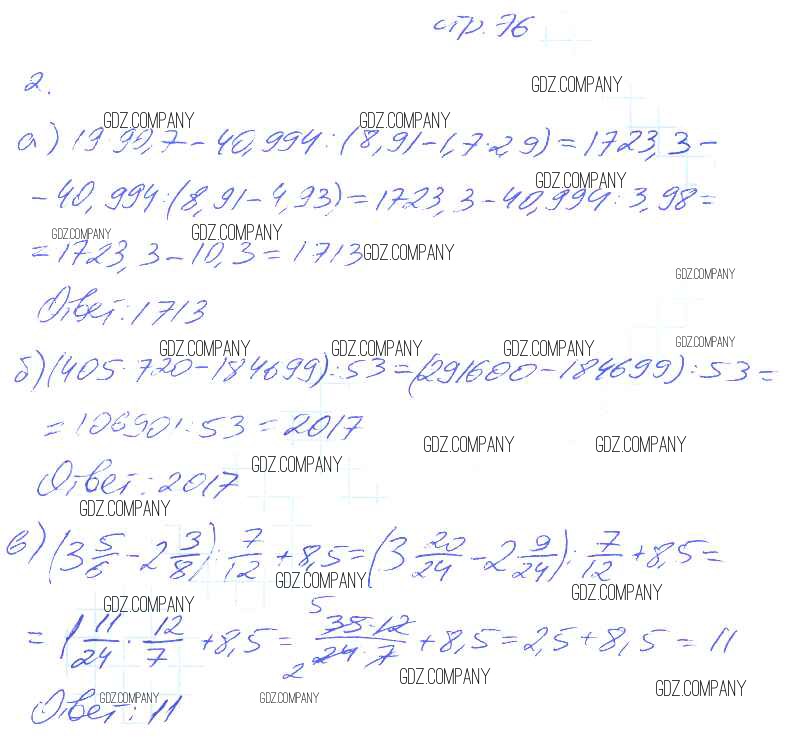 стр. 76
2.
GDZ.COMPANY
GDZ.COMPANY GDZ.COMPANY
а) 19·90,7 - 40,994 : (8,91 - 1,7·2,9) = 1723,3 -
GDZ.COMPANY
- 40,994 : (8,91 - 4,93) = 1723,3 - 40,994 : 3,98 =
GDZ.COMPANY GDZ.COMPANY
= 1723,3 - 10,3 = 1713 GDZ.COMPANY
GDZ.COMPANY
Ответ: 1713
GDZ.COMPANY GDZ.COMPANY GDZ.COMPANY GDZ.COMPANY
б) (405·720 - 184699) : 53 = (291600 - 184699) : 53 =
= 106901 : 53 = 2017
GDZ.COMPANY GDZ.COMPANY
GDZ.COMPANY
Ответ: 2017
GDZ.COMPANY
в) (3 5/6 - 2 3/8) : 7/12 + 8,5 = (3 20/24 - 2 9/24) : 7/12 + 8,5 =
GDZ.COMPANY GDZ.COMPANY
GDZ.COMPANY
= 1 11/24 · 12/7 + 8,5 = 5 35·12 / 2 24·7 + 8,5 = 2,5 + 8,5 = 11
GDZ.COMPANY GDZ.COMPANY
GDZ.COMPANY GDZ.COMPANY
Ответ: 11